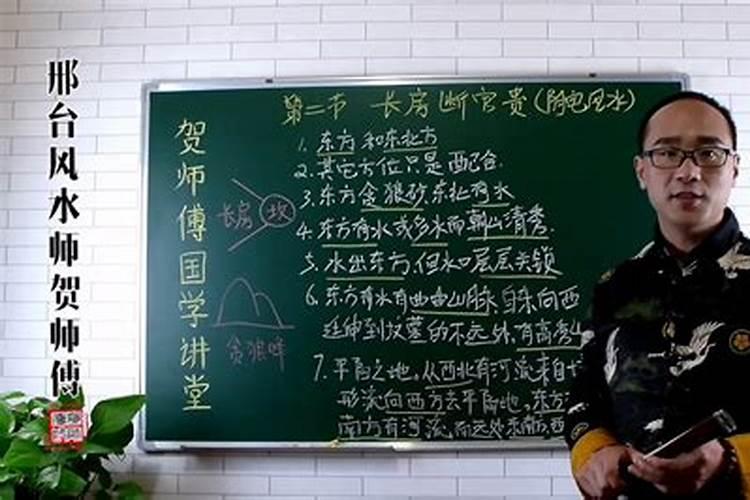 邢台风水师贺师傅
贺师傅国学讲堂
第二节 长房断官贵(阴宅风水)
1. 东方和东北方
2. 其它方位只是配合.
3. 东方贪狼砂,东北有水
4. 东方有水或多水而朝山清秀.
5. 水出东方,但水口层层关锁
6. 东方有水有曲曲山脉,自东向西
延伸到坟墓的不远处,有高秀山
7. 平阳之地,从西北有河流来自
形流向西方去平阳地,东方
南方有河流,而远处东南,西
长房
坟
贪狼峰